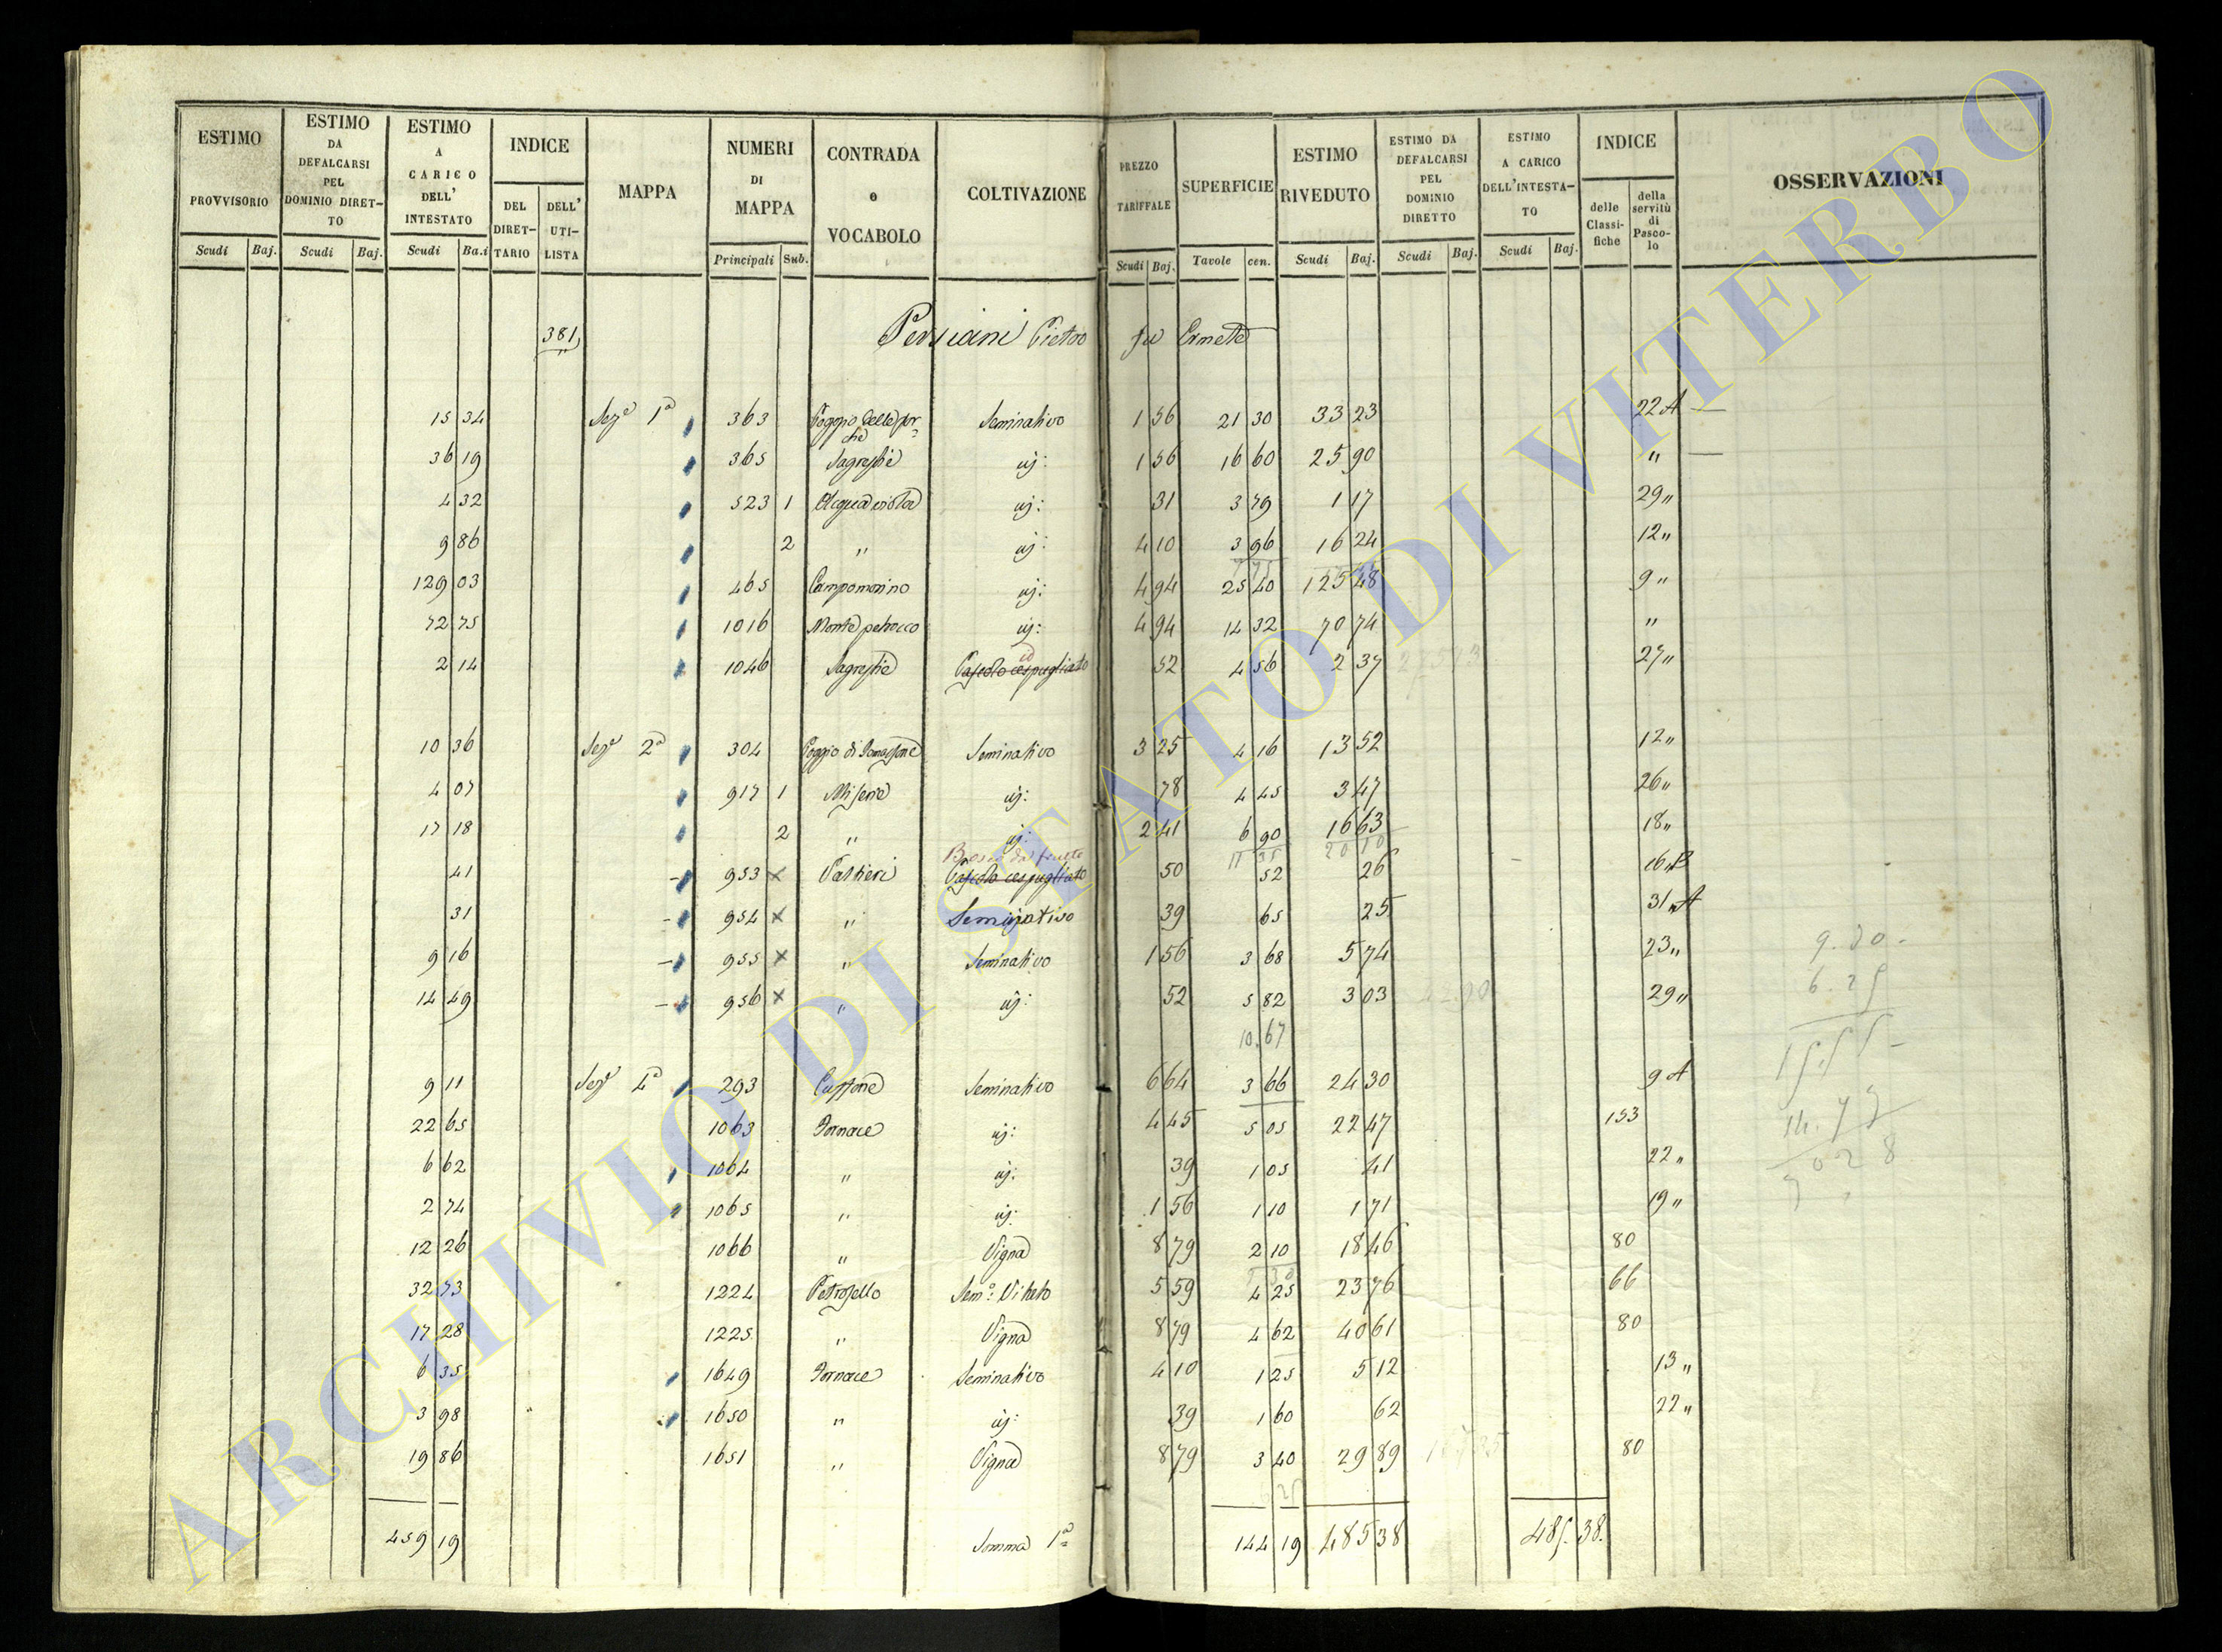 ESTIMO PROVVISORIO Scudi Baj.
ESTIMO DA DEFALCARSI PEL DOMINIO DIRET-TO Scudi Baj.
ESTIMO A CARICO DELL' INTESTATO Scudi Ba.i
INDICE DEL DIRET-TARIO DELL' UTI-LISTA
MAPPA
NUMERI DI MAPPA Principali Sub.
CONTRADA e VOCABOLO
COLTIVAZIONE
PREZZO TARIFFALE Scudi Baj.
SUPERFICIE Tavole cen.
ESTIMO RIVEDUTO Scudi Baj.
ESTIMO DA DEFALCARSI PEL DOMINIO DIRETTO Scudi Baj.
ESTIMO A CARICO DELL'INTESTA-TO Scudi Baj.
INDICE delle Classi-fiche della servitù di Pasco-lo
OSSERVAZIONI
381 Persiani Pietro fu Ermete
15 34 Sezᵉ 1ª 363 Poggio delle for- Seminativo 1 56 21 30 33 23 22 A
36 19 365 Sagrestie uj: 1 56 16 60 25 90 "
4 32 523 1 uj: 31 3 79 1 17 29 "
9 86 2 " uj: 4 10 3 96 16 24 12 "
129 03 465 Campomorino uj: 4 94 25 40 125 48 9 "
72 75 1016 Monte petrocco uj: 4 94 14 32 70 74 "
2 14 1046 Sagrestie Pascolo cespugliato 52 4 56 2 37 27 "
10 36 Sezᵉ 2ª 304 Poggio di Seminativo 3 25 4 16 13 52 12 "
4 07 917 1 Miserie uj: 78 4 45 3 47 26 "
17 18 2 " uj: 2 41 6 90 16 63 18 "
11 35 20 10
Bosco da frutto
41 953 x Valtieri Pascolo cespugliato 50 52 26 16 " B
31 954 x " Seminativo 39 65 25 31 " A
9 16 955 x " Seminativo 1 56 3 68 5 74 23 "
14 49 956 x " uj: 52 5 82 3 03 29 "
10.67
9 11 Sezᵉ 4ª 293 Seminativo 6 64 3 66 24 30 9 A
22 65 1063 Fornace uj: 4 45 5 05 22 47 153
6 62 1064 " uj: 39 1 05 41 22 "
2 74 1065 " uj: 1 56 1 10 1 71 19 "
12 26 1066 " Vigna 8 79 2 10 18 46 80
32 73 1224 Petrosello Semº: Vitato 5 59 4 25 23 76 66
17 28 1225 " Vigna 8 79 4 62 40 61 80
6 35 1649 Fornace Seminativo 4 10 1 25 5 12 13 "
3 98 1650 " uj: 39 1 60 62 22 "
19 86 1651 " Vigna 8 79 3 40 29 89 80
459 19 Somma 1ª 144 19 485 38 485. 38.
ARCHIVIO DI STATO DI VITERBO